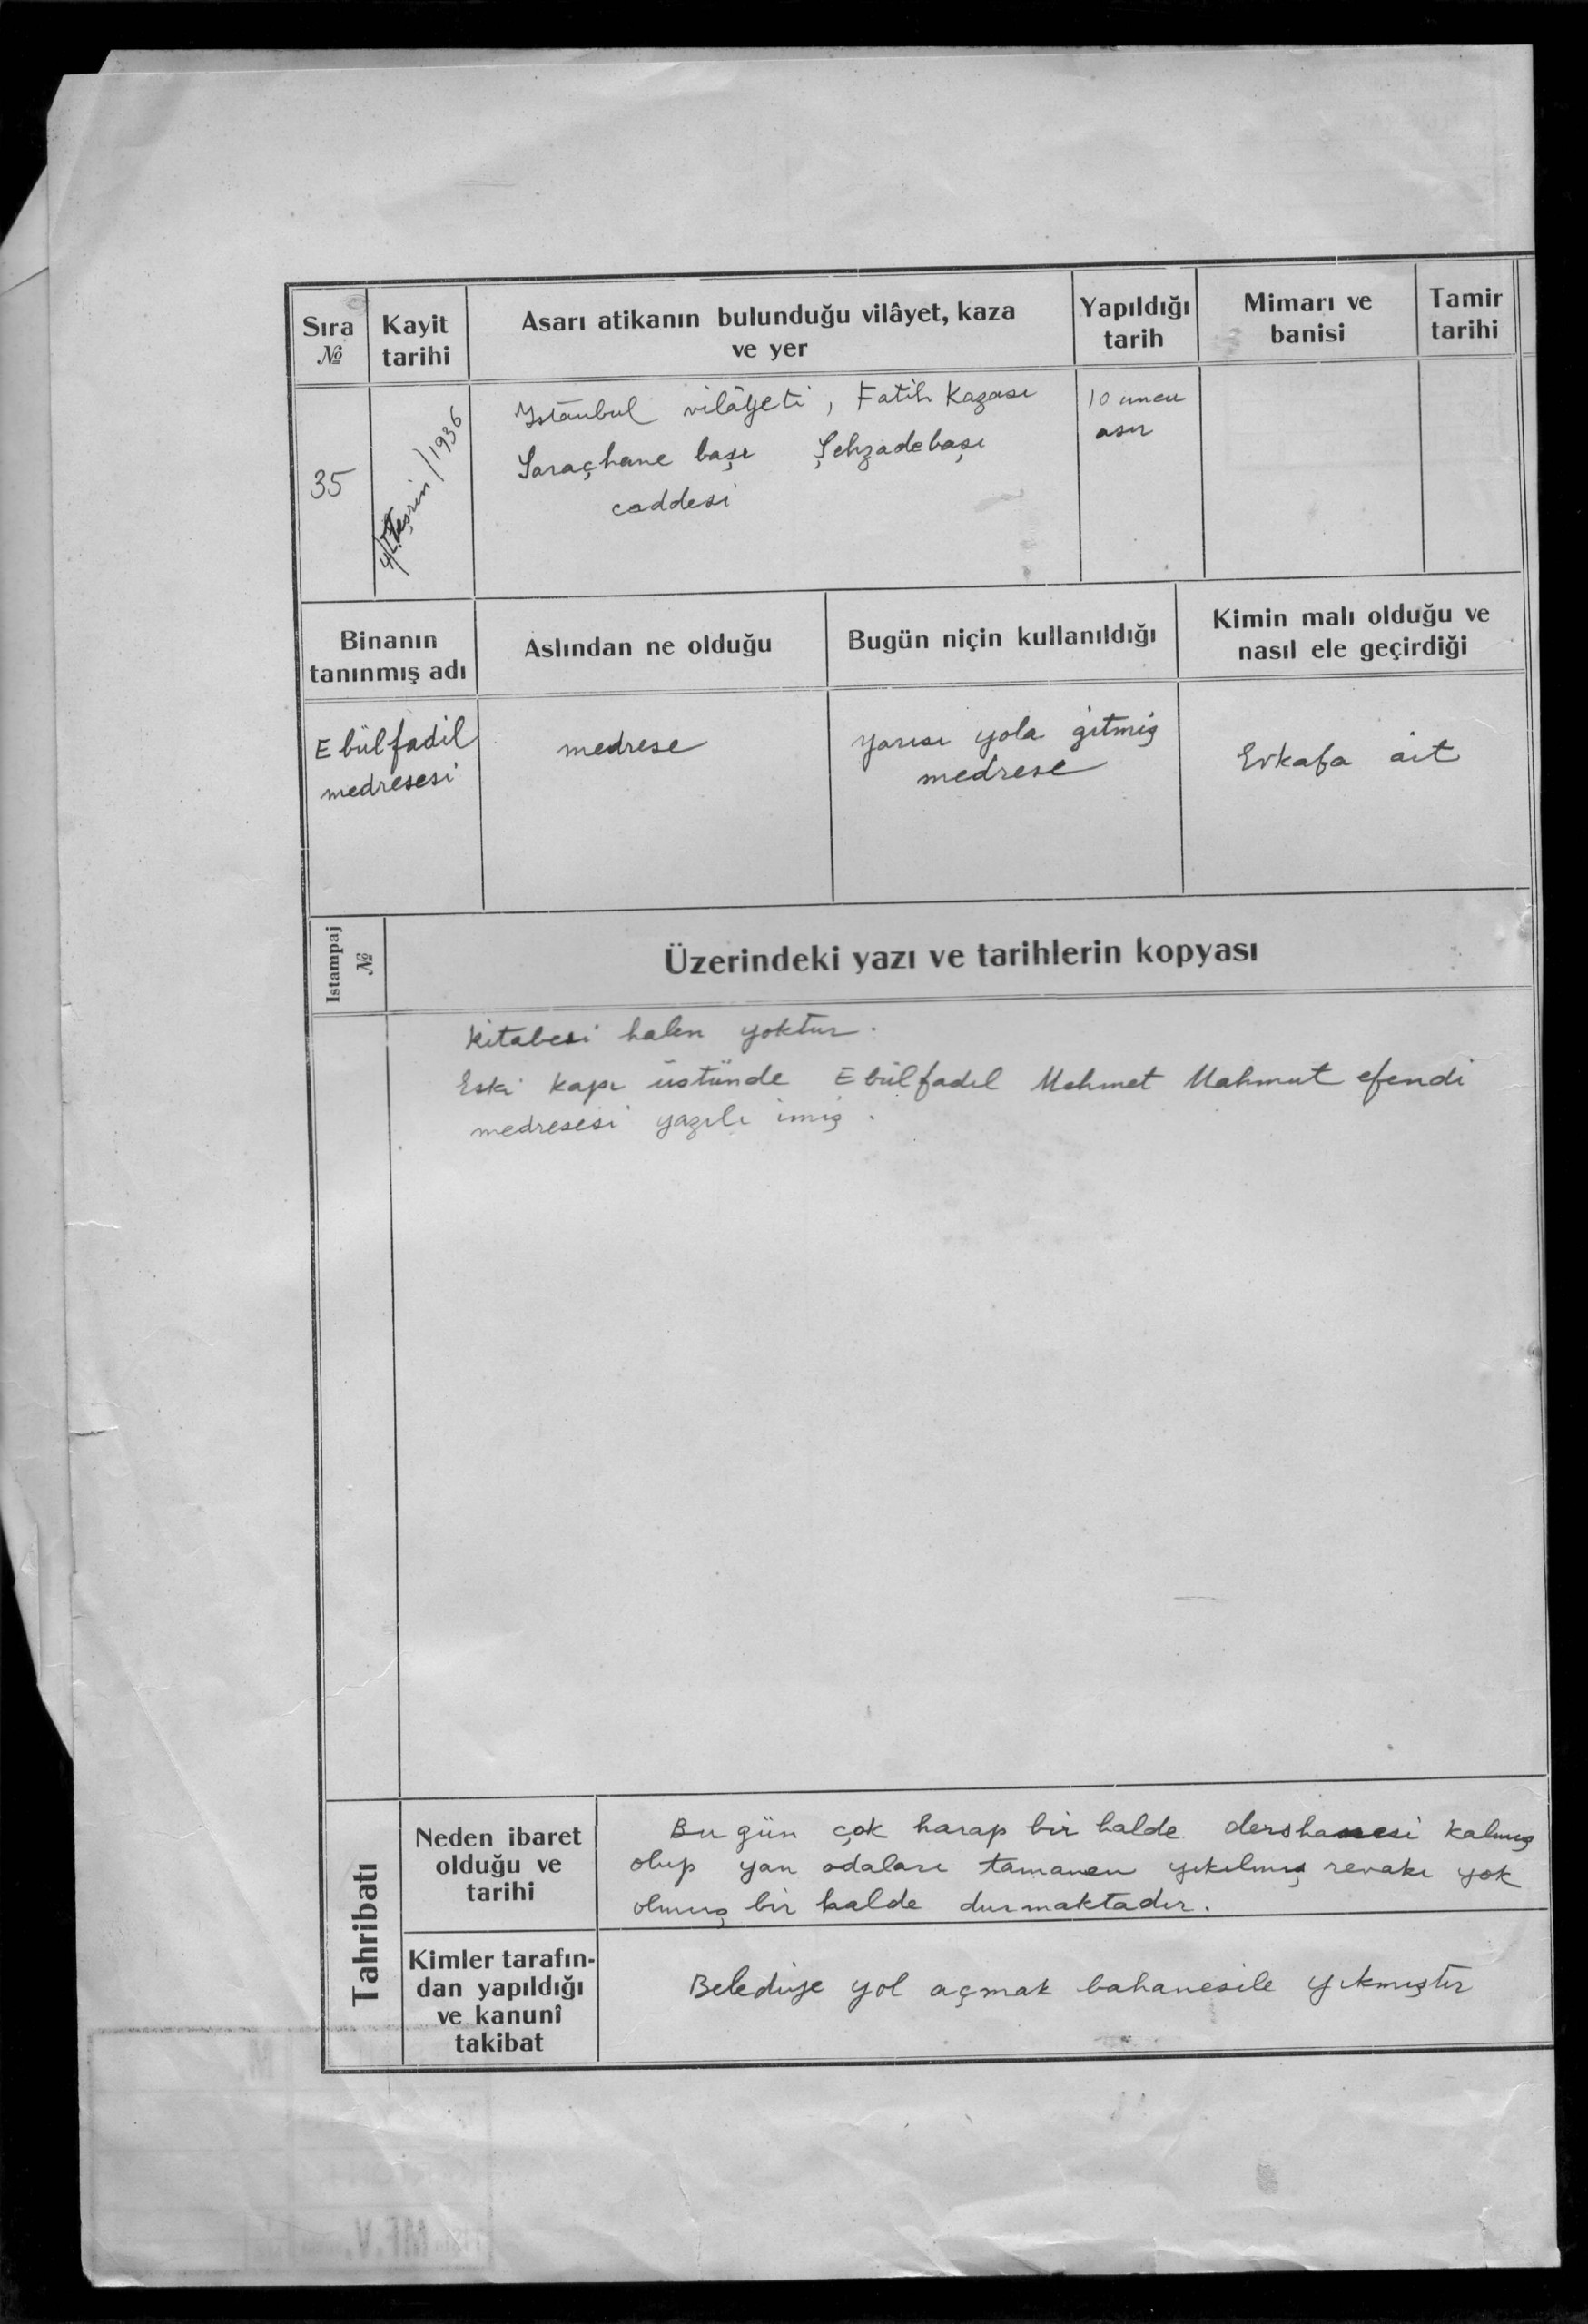 Sıra № Kayit tarihi Asarı atikanın bulunduğu vilâyet, kaza ve yer Yapıldığı tarih Mimarı ve banisi Tamir tarihi
35
Teşrin/1936
Istanbul vilâyeti, Fatih Kazası
Saraçhane başı Şehzadebaşı
caddesi
10 uncu
asır
Binanın tanınmış adı
Aslından ne olduğu
Bugün niçin kullanıldığı
Kimin malı olduğu ve nasıl ele geçirdiği
Ebülfadil
medresesi
medrese
yarısı yola gitmiş
medrese
Evkafa ait
Istampaj №
Üzerindeki yazı ve tarihlerin kopyası
Kitabesi halen yoktur.
Eski kapı üstünde Ebülfadıl Mehmet Mahmut efendi
medresesi yazılı imiş.
Tahribatı
Neden ibaret
olduğu ve
tarihi
Bu gün çok harap bir halde dershanesi kalmış
olup yan odaları tamamen yıkılmış revakı yok
olmuş bir halde durmaktadır.
Kimler tarafın-
dan yapıldığı
ve kanunî
takibat
Belediye yol açmak bahanesile yıkmıştır